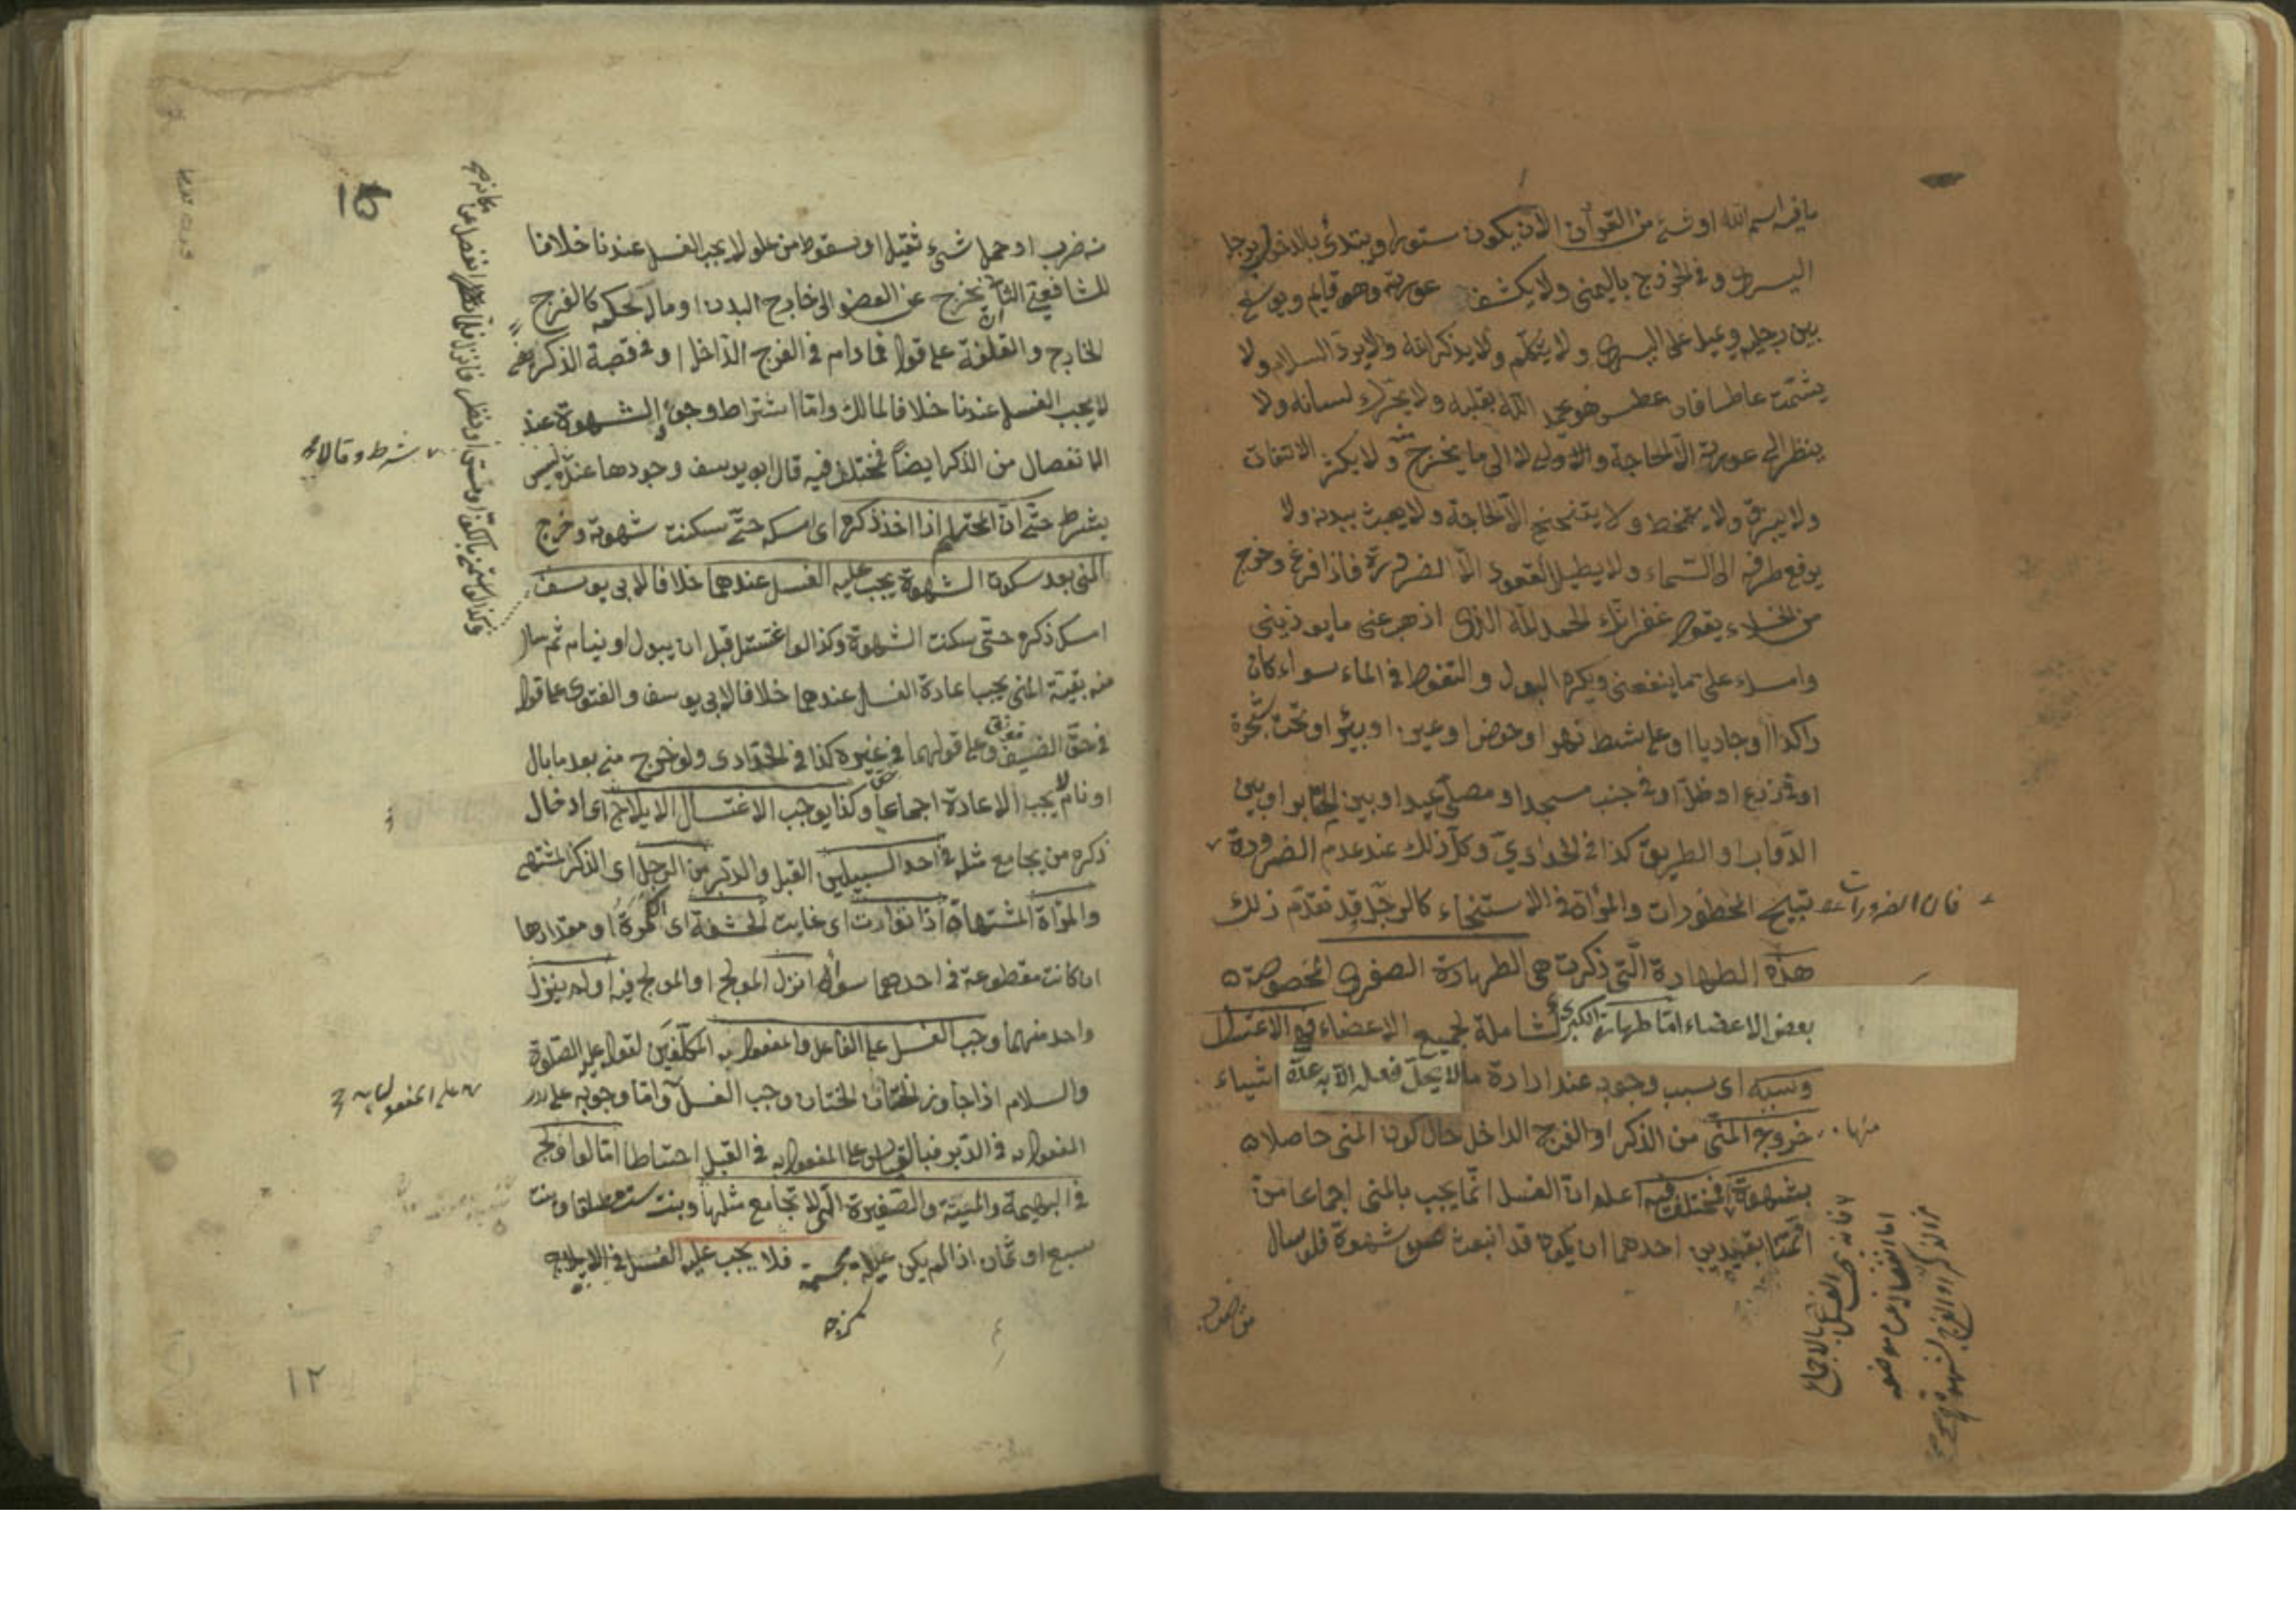 ما فيه اسم الله او شئ من القرآن الا ان يكون مستورا ويبتدئ بالدخول برجله
اليسرى وفي الخروج باليمنى ولا يكشف عورته وهو قايم ويوسع
بين رجليه ويميل على اليسرى ولا يتكلم ولا يذكر الله ولا يرد السلام ولا
يشمت عاطسا فان عطس هو يحمد الله بقلبه ولا يحرك لسانه ولا
ينظر الى عورته الا لحاجة ولا الى ما يخرج منه ولا يكثر الالتفات
ولا يبزق ولا يتمخط ولا يتنحنح الا لحاجة ولا يعبث ببدنه ولا
يرفع طرفه الى السماء ولا يطيل القعود الا لضرورة فاذا فرغ وخرج
من الخلاء يقول غفرانك الحمد لله الذى اذهب عنى ما يوذينى
وامسك على ما ينفعنى ويكره البول والتغوط في الماء سواء كان
راكدا او جاريا او على شط نهر او حوض او عين او بئر او تحت شجرة
او في زرع او ظل او في جنب مسجد او مصلى عيد او بين المقابر او بين
الدواب او الطريق كذا في الحدادي وكل ذلك عند عدم الضرورة
فان الضرورات تبيح المحظورات والمرأة في الاستنجاء كالرجل قد تقدم ذلك
هذه الطهارة التى ذكرت هي الطهارة الصغرى المخصوصة
بعض الاعضاء اما طهارته الكبرى الشاملة لجميع الاعضاء فهو الاغتسال
وسببه اى سبب وجوبه عند ارادة ما لا يحل فعله الا به عدة اشياء
منها خروج المنى من الذكر او الفرج الداخل حال كون المنى حاصلا
بشهوة فمختلف فيه اعلم ان الغسل انما يجب بالمنى اجماعا من
ائمتنا بقيدين احدهما ان يكون قد انبعث عن شهوة فلو سال
فانه يجب الغسل بالاجماع
اما انفصاله من موضعه
من الذكر او الفرج بشهوة
16
منه ضرب او حمل شئ ثقيل او سقوط من علو لا يجب الغسل عندنا خلافا
للشافعي الثانى ان يخرج عن العضو الى خارج البدن او ماله حكمه كالفرج
الخارج والقلفة على قول فما دام في الفرج الداخل او في قصبة الذكر
لا يجب الغسل عندنا خلافا لمالك واما اشتراط وجود الشهوة عند
الانفصال من الذكر ايضا فمختلف فيه قال ابو يوسف وجودها عنده ليس
شرط وقالا
بشرط حتى ان المحتلم اذا اخذ ذكره اى امسكه حتى سكنت شهوته وخرج
المنى بعد سكون الشهوة يجب عليه الغسل عندهما خلافا لابى يوسف
امسك ذكره حتى سكنت الشهوة وكذا لو اغتسل قبل ان يبول او ينام ثم سال
منه بقية المنى يجب اعادة الغسل عندهما خلافا لابى يوسف والفتوى على قوله
في حق الضيف وعلى قولهما في غيره كذا في الحدادى ولو خرج منه بعد ما بال
او نام لا يجب الاعادة اجماعا وكذا يوجب الاغتسال الايلاج اى ادخال
ذكره من يجامع مثله في احد السبيلين القبل والدبر من الرجل اى الذكر المشتهى
والمرأة المشتهاة اذا توارت اى غابت الحشفة اى الكمرة او مقدارها
ان كانت مقطوعة في احدهما سواء انزل المولج او المولج فيه او لم ينزل
واحد منهما وجب الغسل على الفاعل والمفعول به المكلفين لقوله عليه الصلوة
والسلام اذا جاوز الختان الختان وجب الغسل واما وجوبه على
على المفعول به
المفعول به في الدبر فبالقياس على المفعول به في القبل احتياطا اما لو اولج
في البهيمة والميتة والصغيرة التى لا تجامع مثلها وبنت ست مطلقا وبنت
سبع او ثمان اذا لم يكن عبلة فلا يجب عليه الغسل في الايلاج
١٢